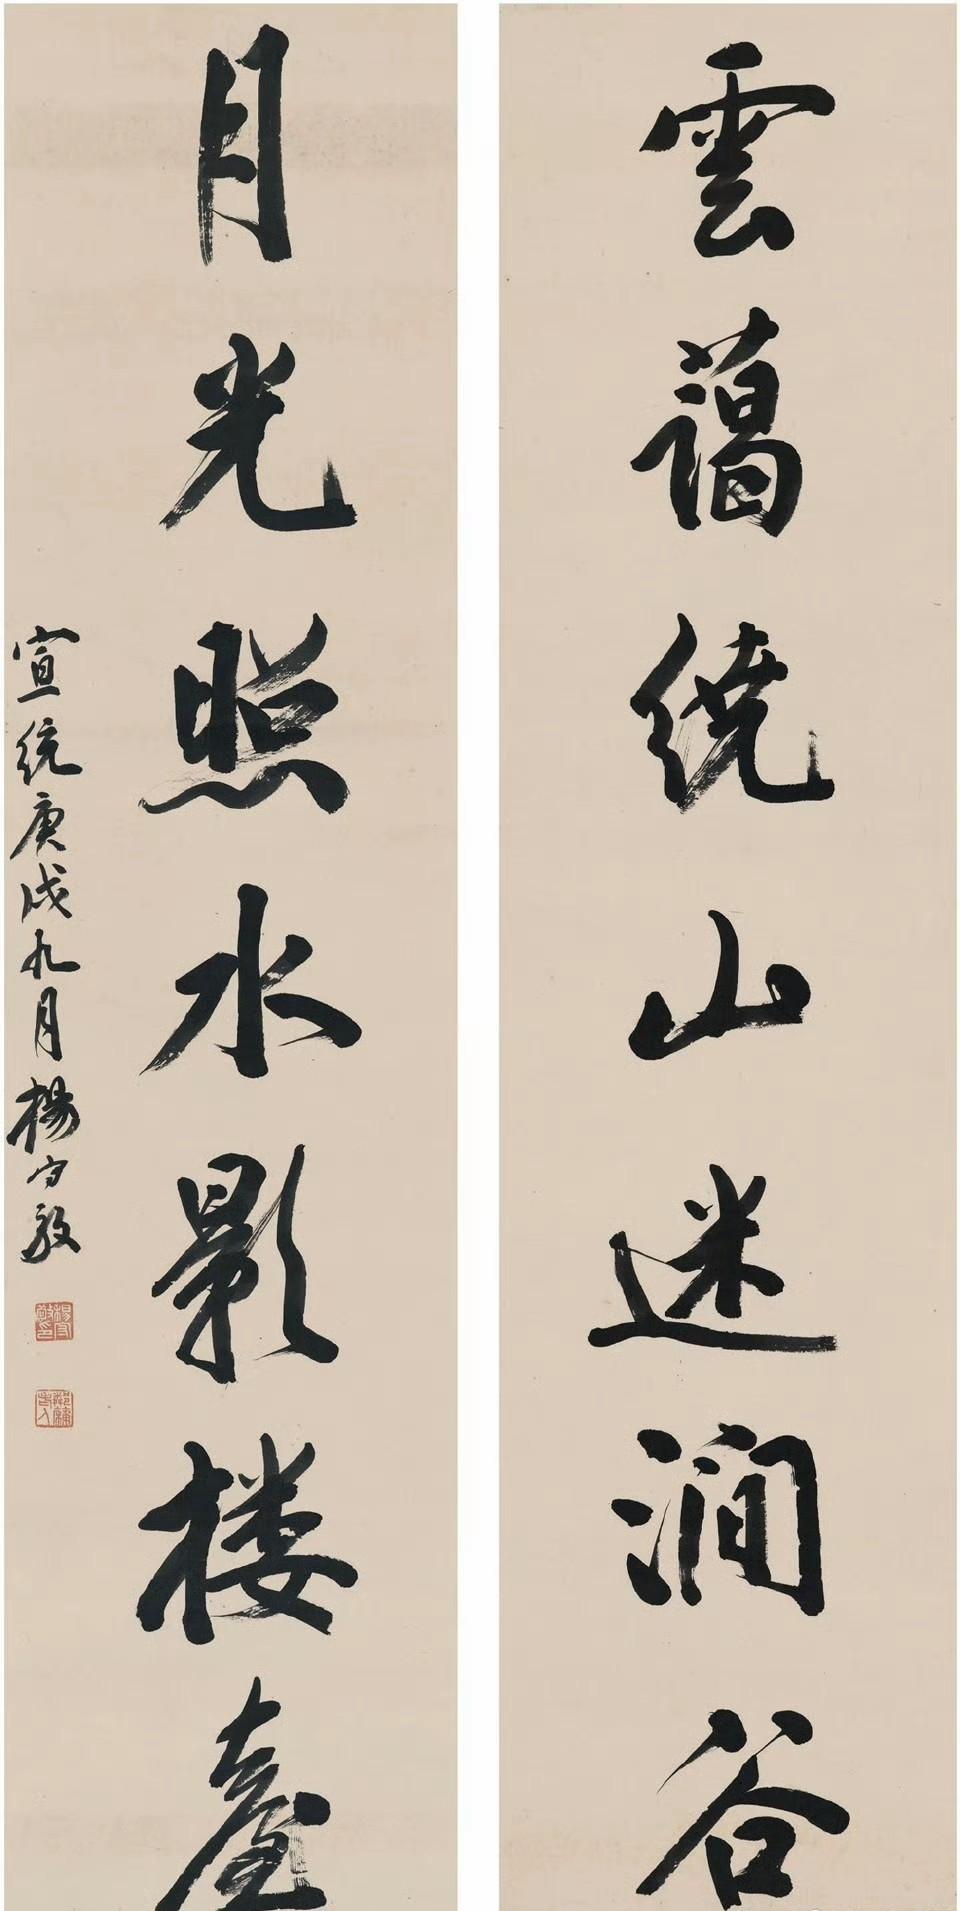 雲藹繞山迷澗谷
月光照水影楼臺
宣統庚戌九月楊守敬
楊守敬印